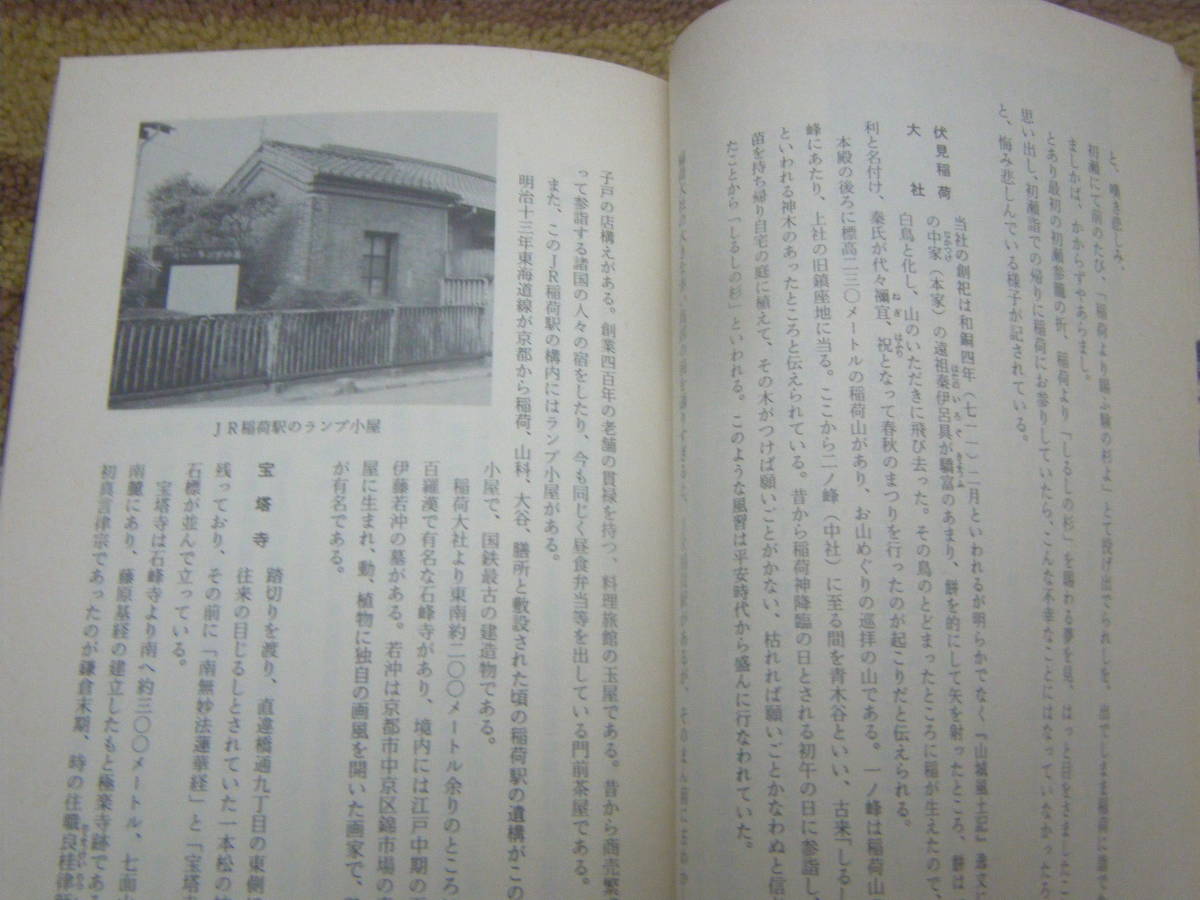 と、嘆き悲しみ、
初瀬にて前のたび、「稲荷より賜ふ験の杉よ」とて投げ出でられしを、出でしまま稲荷に詣でた
ましかば、かからずやあらまし。
とあり最初の初瀬参籠の折、稲荷より「しるしの杉」を賜わる夢を見、はっと目をさましたこ
思い出し、初瀬詣での帰りに稲荷にお参りしていたら、こんな不幸なことにはなっていなかったろ
と、悔み悲しんでいる様子が記されている。
伏見稲荷
大社
当社の創祀は和銅四年(七一一)二月といわれるが明らかでなく『山城風土記』逸文に
の中家(本家)の遠祖秦伊呂具が驕富のあまり、餅を的にして矢を射ったところ、餅は
白鳥と化し、山のいただきに飛び去った。その鳥のとどまったところに稲が生えたので、
利と名付け、秦氏が代々禰宜、祝となって春秋のまつりを行ったのが起こりだと伝えられる。
本殿の後ろに標高二三〇メートルの稲荷山があり、お山めぐりの巡拝の山である。一ノ峰は稲荷山
峰にあたり、上社の旧鎮座地に当る。ここから二ノ峰(中社)に至る間を青木谷といい、古来「しるし
といわれる神木のあったところと伝えられている。昔から稲荷神降臨の日とされる初午の日に参詣し、
苗を持ち帰り自宅の庭に植えて、その木がつけば願いごとがかない、枯れれば願いごとかなわぬと信
たことから「しるしの杉」といわれる。このような風習は平安時代から盛んに行なわれていた。
子戸の店構えがある。創業四百年の老舗の貫禄を持つ、料理旅館の玉屋である。昔から商売繁
って参詣する諸国の人々の宿をしたり、今も同じく昼食弁当等を出している門前茶屋である。
また、このJR稲荷駅の構内にはランプ小屋がある。
明治十三年東海道線が京都から稲荷、山科、大谷、膳所と敷設された頃の稲荷駅の遺構がこの
小屋で、国鉄最古の建造物である。
稲荷大社より東南約二〇〇メートル余りのところ
百羅漢で有名な石峰寺があり、境内には江戸中期の
伊藤若沖の墓がある。若沖は京都市中京区錦市場の
屋に生まれ、動、植物に独自の画風を開いた画家で、
が有名である。
JR稲荷駅のランプ小屋
宝塔寺
踏切りを渡り、直違橋通九丁目の東側
往来の目じるしとされていた一本松の
残っており、その前に「南無妙法蓮華経」と「宝塔
石標が並んで立っている。
宝塔寺は石峰寺より南へ約三〇〇メートル、七面
南麓にあり、藤原基経の建立したもと極楽寺跡である
初真言律宗であったのが鎌倉末期、時の住職良桂律